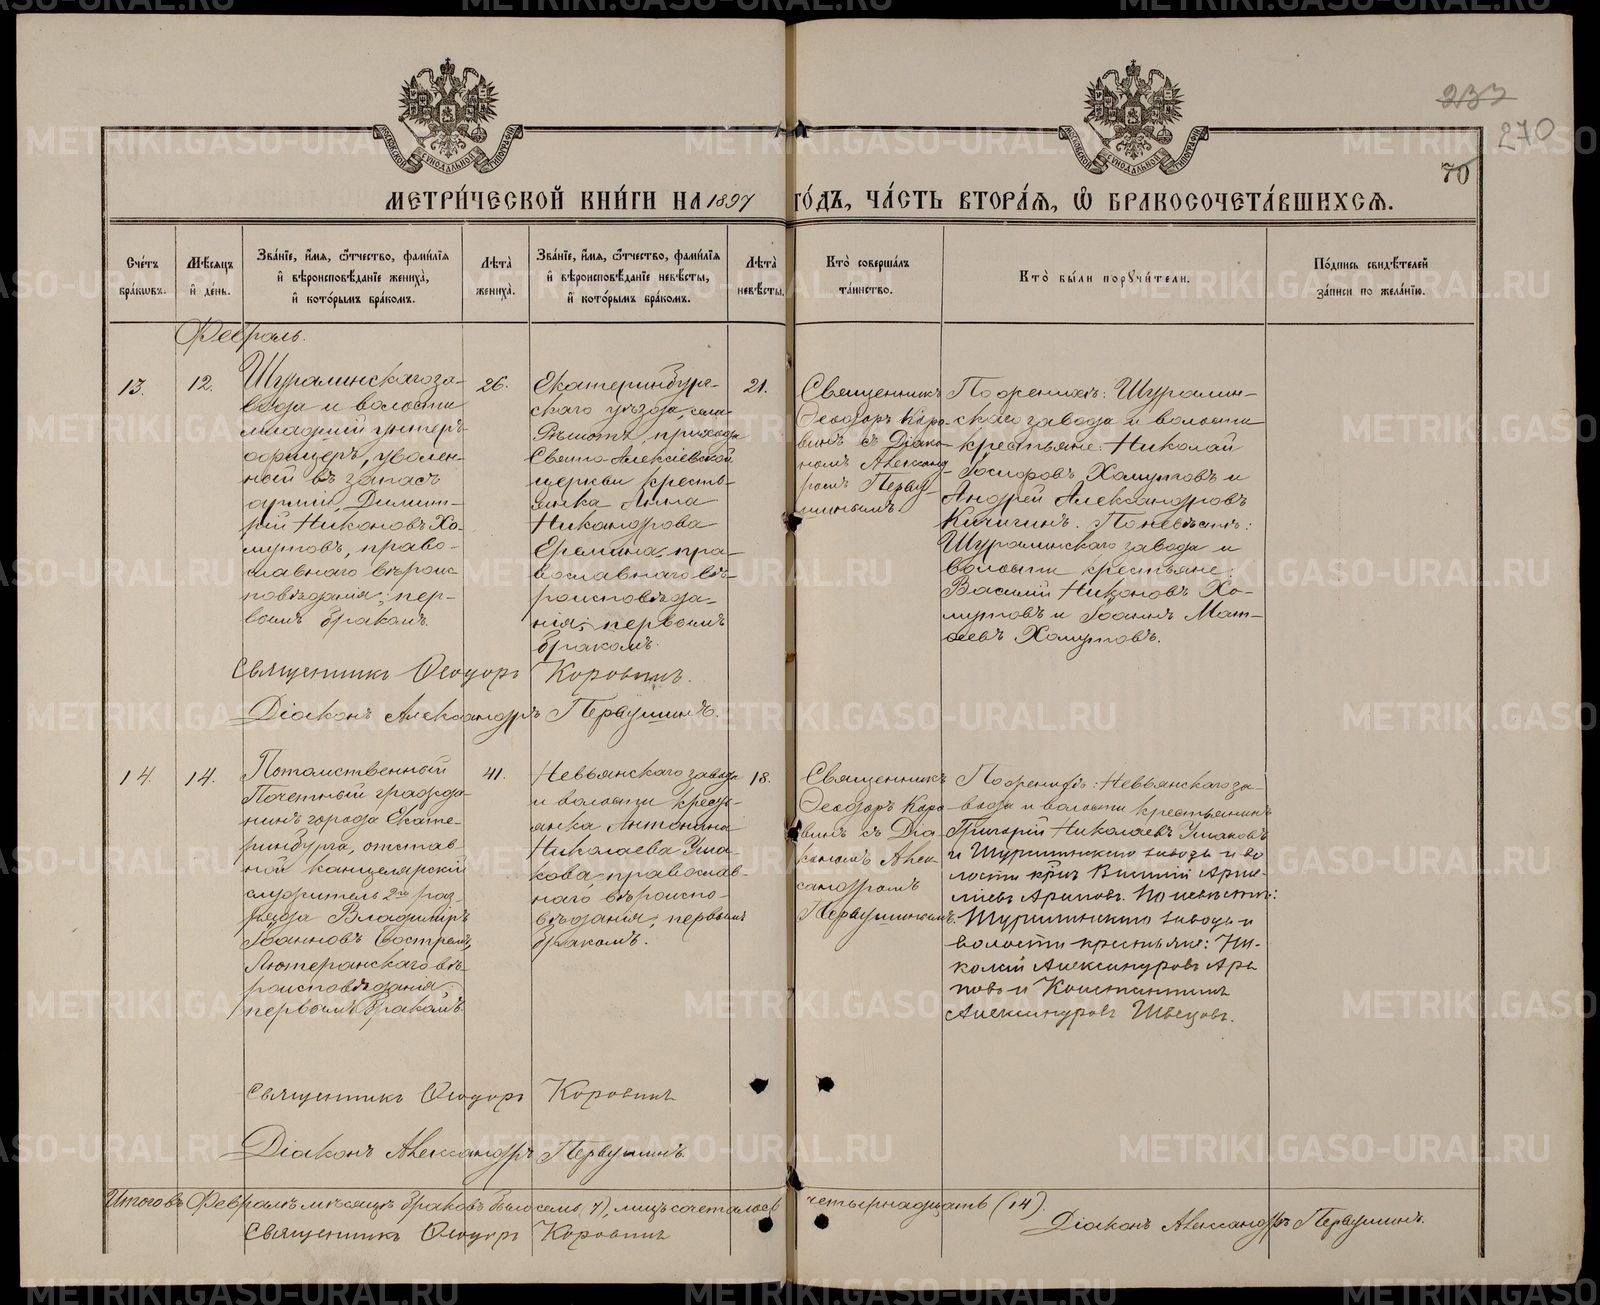 237
270
70
МОСКОВСКОЙ СѴНОДАЛЬНОЙ ТИПОГРАФІИ
МОСКОВСКОЙ СѴНОДАЛЬНОЙ ТИПОГРАФІИ
МЕТРИ́ЧЕСКОЙ КНИ́ГИ НА 1897 ГО́ДЪ, ЧА́СТЬ ВТОРА́Ѧ, Ѡ БРАКОСОЧЕТА́ВШИХСѦ.
Сче́тъ
бра́ковъ.
Мѣ́сѧцъ
и҆ де́нь.
Зва́нїе, и҆́мѧ, ѻ҆́тчество, фами́лїѧ
и҆ вѣроисповѣ́данїе жениха̀,
и҆ кото́рымъ бра́комъ.
Лѣта̀
жениха̀.
Зва́нїе, и҆́мѧ, ѻ҆́тчество, фами́лїѧ
и҆ вѣроисповѣ́данїе невѣ́сты,
и҆ кото́рымъ бра́комъ.
Лѣта̀
невѣ́сты.
Кто̀ соверша́лъ
та́инство.
Кто̀ бы́ли порꙋчи́тели.
По́дпись свидѣ́телей
за́писи по жела́нїю.
Февраль.
13.
12.
Шуралинскаго за-
вода и волости
младшій унтеръ-
офицеръ, уволен-
ный въ запасъ
арміи, Димит-
рій Никоновъ Хо-
мутовъ, право-
славнаго вѣроис-
повѣданія; пер-
вымъ бракомъ.
26.
Екатеринбург-
скаго уѣзда, села
прихода
Свято-Алексіевской
церкви кресть-
янка Анна
Никандрова
Еремина, пра-
вославнаго вѣ-
роисповѣда-
нія; первымъ
бракомъ.
21.
Священникъ
Ѳеодоръ Коро-
винъ съ Діако-
номъ Александ-
ромъ Перву-
шинымъ.
По женихѣ: Шуралин-
скаго завода и волости
крестьяне: Николай
Іосифовъ Хомутовъ и
Андрей Александровъ
Кичигинъ. По невѣстѣ:
Шуралинскаго завода и
волости крестьяне:
Василій Никоновъ Хо-
мутовъ и Іоаннъ Мат-
ѳеевъ Хомутовъ.
Священникъ Ѳеодоръ Коровинъ.
Діаконъ Александръ Первушинъ.
14.
14.
Потомственный
Почетный гражда-
нинъ города Екате-
ринбурга, отстав-
ной канцелярскій
служитель 2го раз-
ряда Владиміръ
Іоанновъ Бостремъ,
Лютеранскаго вѣ-
роисповѣданія;
первымъ бракомъ.
41.
Невьянскаго завода
и волости кресть-
янка Антонина
Николаева Уша-
кова, православ-
наго вѣроиспо-
вѣданія; первымъ
бракомъ.
18.
Священникъ
Ѳеодоръ Коро-
винъ съ Діа-
кономъ Алек-
сандромъ
Первушинымъ.
По женихѣ: Невьянскаго за-
вода и волости крестьянинъ
Григорій Николаевъ Ушаковъ
и Шуралинскаго завода и во
лости Араповъ. По невѣстѣ:
Шуралинскаго завода и
волости крестьяне: Ни-
колай Александровъ Ара
повъ и Константинъ
Александровъ Швецовъ.
Священникъ Ѳеодоръ Коровинъ
Діаконъ Александръ Первушинъ.
Итого въ Февралѣ мѣсяцѣ браковъ было семь (7), лицъ сочеталось четырнадцать (14).
Священникъ Ѳеодоръ Коровинъ
Діаконъ Александръ Первушинъ.
METRIKI.GASO-URAL.RU